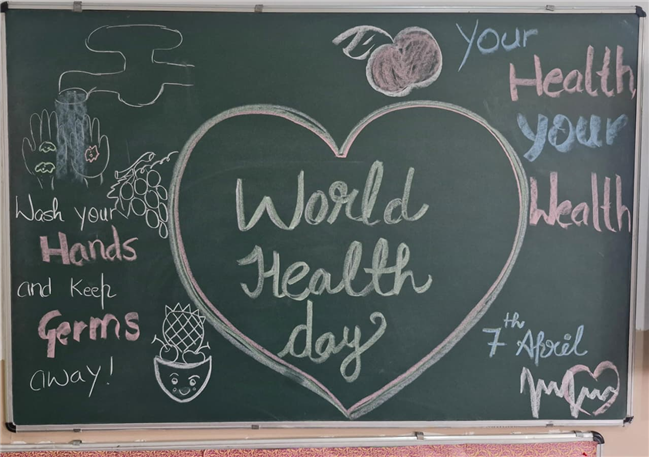 Wash your
Hands
and Keep
Germs
away!
World
Health
day
Your
Health
your
Wealth
7th April